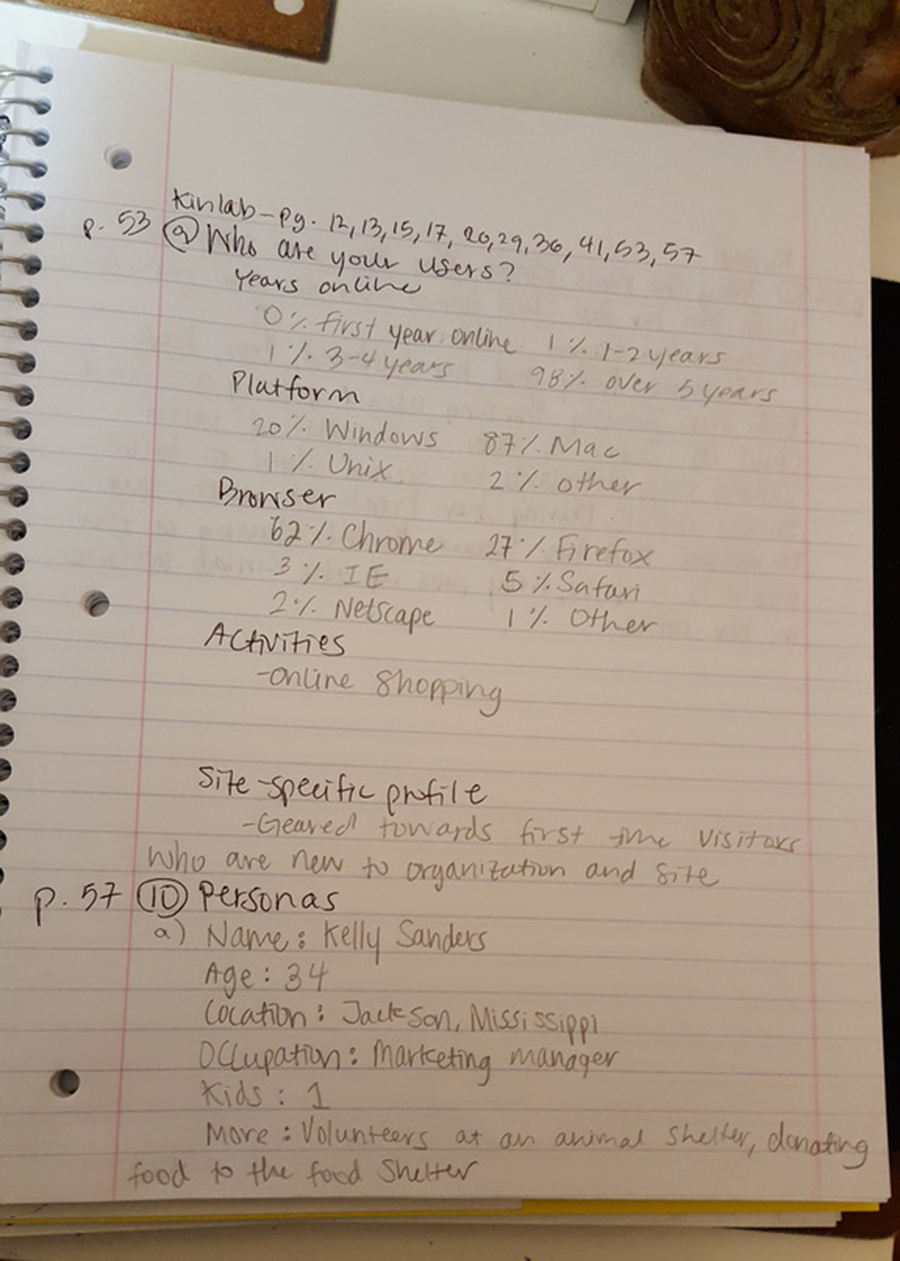 Kinlab - Pg. 12, 13, 15, 17, 20, 29, 36, 41, 53, 57
p. 53 9 Who are your users?
Years online
0% first year online 1% 1-2 years
1% 3-4 years 98% over 5 years
Platform
20% Windows 87% Mac
1% Unix 2% other
Browser
62% Chrome 27% Firefox
3% IE 5% Safari
2% Netscape 1% Other
Activities
-Online Shopping
Site-specific profile
-Geared towards first time visitors
who are new to organization and site
p. 57 10 Personas
a) Name: Kelly Sanders
Age: 34
Location: Jackson, Mississippi
Occupation: Marketing manager
Kids: 1
More: Volunteers at an animal shelter, donating
food to the food shelter